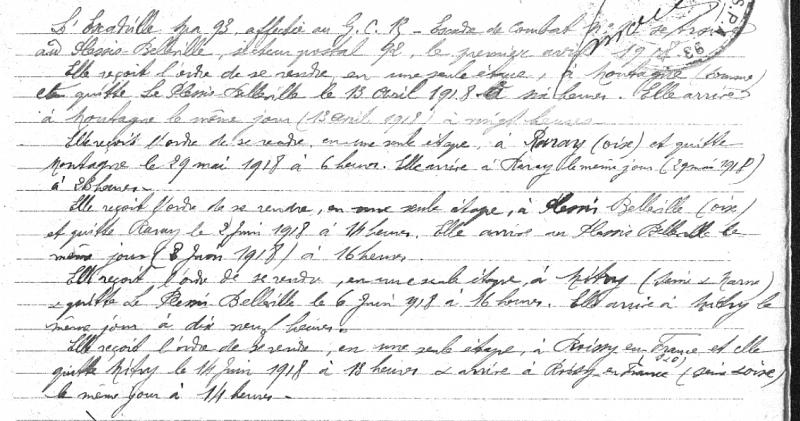 L'Escadrille Spa 93, affectée au G.C. 12 - Escadre de Combat N° 1 se trouve
au Plessis Belleville, secteur postal 92, le premier avril 1918
Elle reçoit l'ordre de se rendre, en une seule étape, à Montagne (Somme)
et quitte Le Plessis Belleville le 13 Avril 1918 à six heures. Elle arrive
à Montagne le même jour (13 avril 1918) à vingt heures
Elle reçoit l'ordre de se rendre, en une seule étape, à Raray (oise) et quitte
Montagne le 29 mai 1918 à 6 heures. Elle arrive à Raray le même jour (29 mai 1918)
à 20 heures -
Elle reçoit l'ordre de se rendre, en une seule étape, à Plessis Belleville (oise)
et quitte Raray le 2 Juin 1918 à 14 heures. Elle arrive au Plessis Belleville le
même jour (2 Juin 1918) à 16 heures.
Elle reçoit l'ordre de se rendre, en une seule étape, à Mitry (Seine & Marne)
& quitte Le Plessis Belleville le 6 Juin 1918 à 16 heures. Elle arrive à Mitry le
même jour à dix neuf heures.
Elle reçoit l'ordre de se rendre, en une seule étape, à Roissy en France et elle
quitte Mitry le 14 Juin 1918 à 13 heures & arrive à Roissy en France (Seine & oise)
le même jour à 14 heures -
S.P.A 93